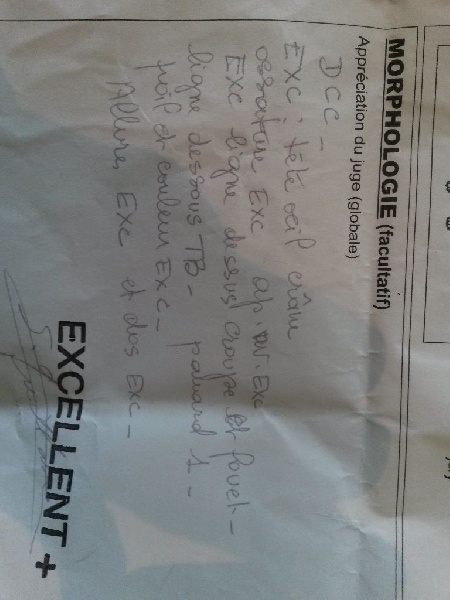 MORPHOLOGIE (facultatif)
Appréciation du juge (globale)
DCC -
EXC : tête oeil crâne
ossature EXC ap. av. EXC
EXC ligne dessus croupe et fouet -
ligne dessous TB - panard 1 -
poil et couleur EXC -
Allures EXC et dos EXC -
EXCELLENT +